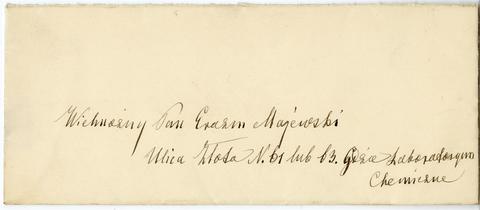 Wielmożny Pan Erazm Majewski
Ulica Złota N. 61 lub 63. Gdzie Laboratoryum
Chemiczne